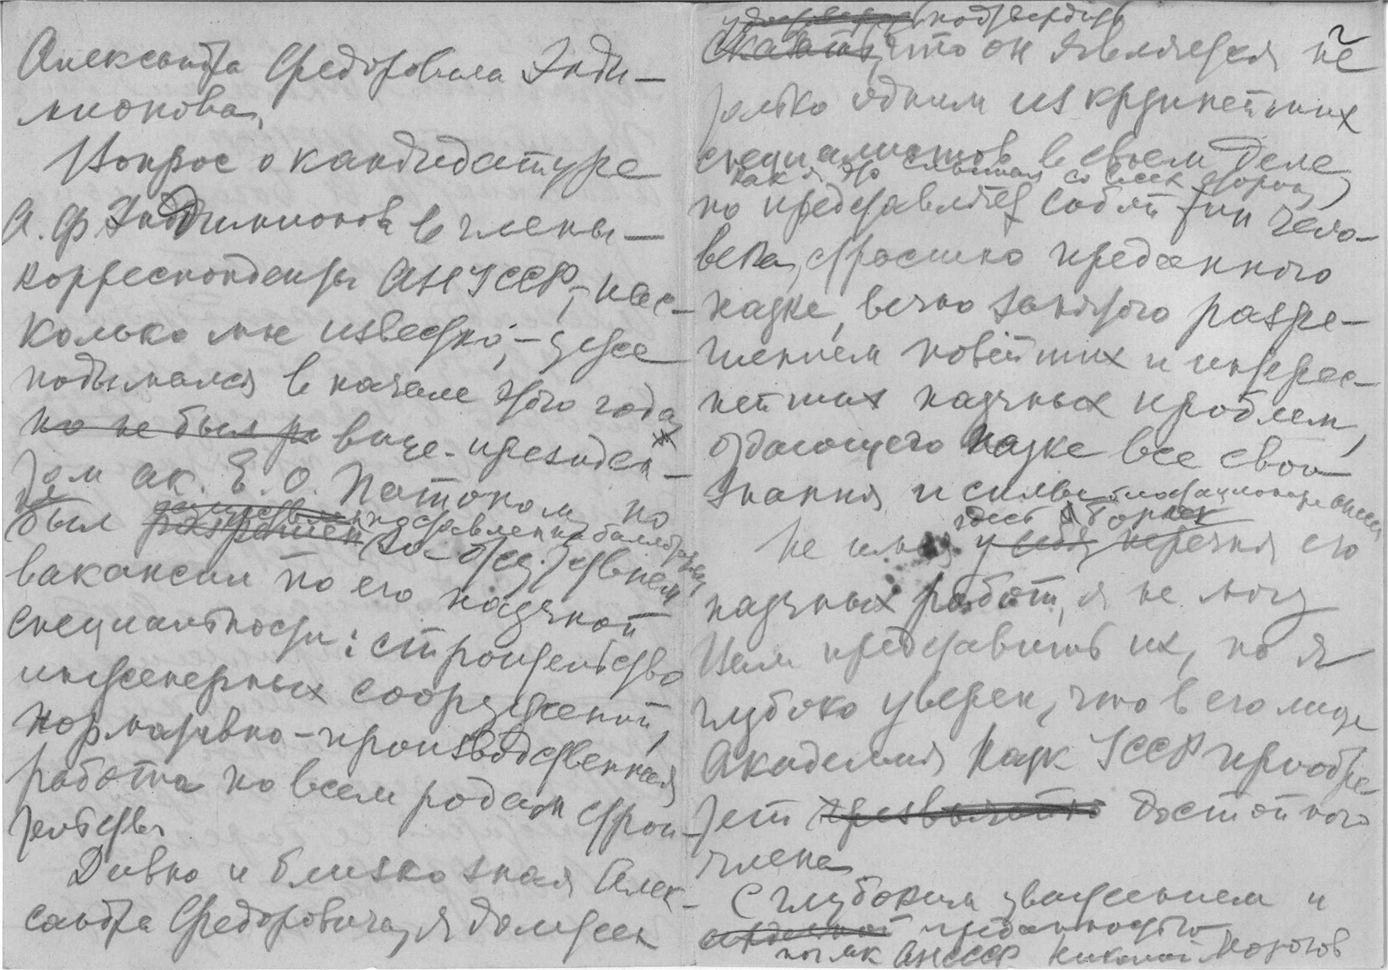 Александра Федоровича Энди-
мионова.
Вопрос о кандидатуре
А. Ф Эндимионова в члены-
корреспонденты АН УССР, - нас-
колько мне известно, - уже
подымался в начале этого года
но не был ра вице-президен-
том ак. Е. О. Патоном, но
представлен к баллотировке
был разрешен за отсутствием
вакансии по его научной
специальности: строительство
инженерных сооружений,
нормативно-производственная
работа по всем родам строи-
тельства
Давно и близко зная Алек-
сандра Федоровича, я должен
подтвердить
сказать, что он является не
только одним из крупнейших
специалистов в своем деле,
как я это слышал со всех сторон,
но представляет собой тип чело-
века, страстно преданного
науке, вечно занятого разре-
шением новейших и интерес-
нейших научных проблем,
отдающего науке все свои
знания и силы
здесь в Борке
Не имея у себя перечня его
научных работ, я не могу
Вам представить их, но я
глубоко уверен, что в его лице
Академия Наук УССР приобре-
тет чрезвычайно достойного
члена
С глубоким уважением и
преданностью
поч ак АН СССР Николай Морозов